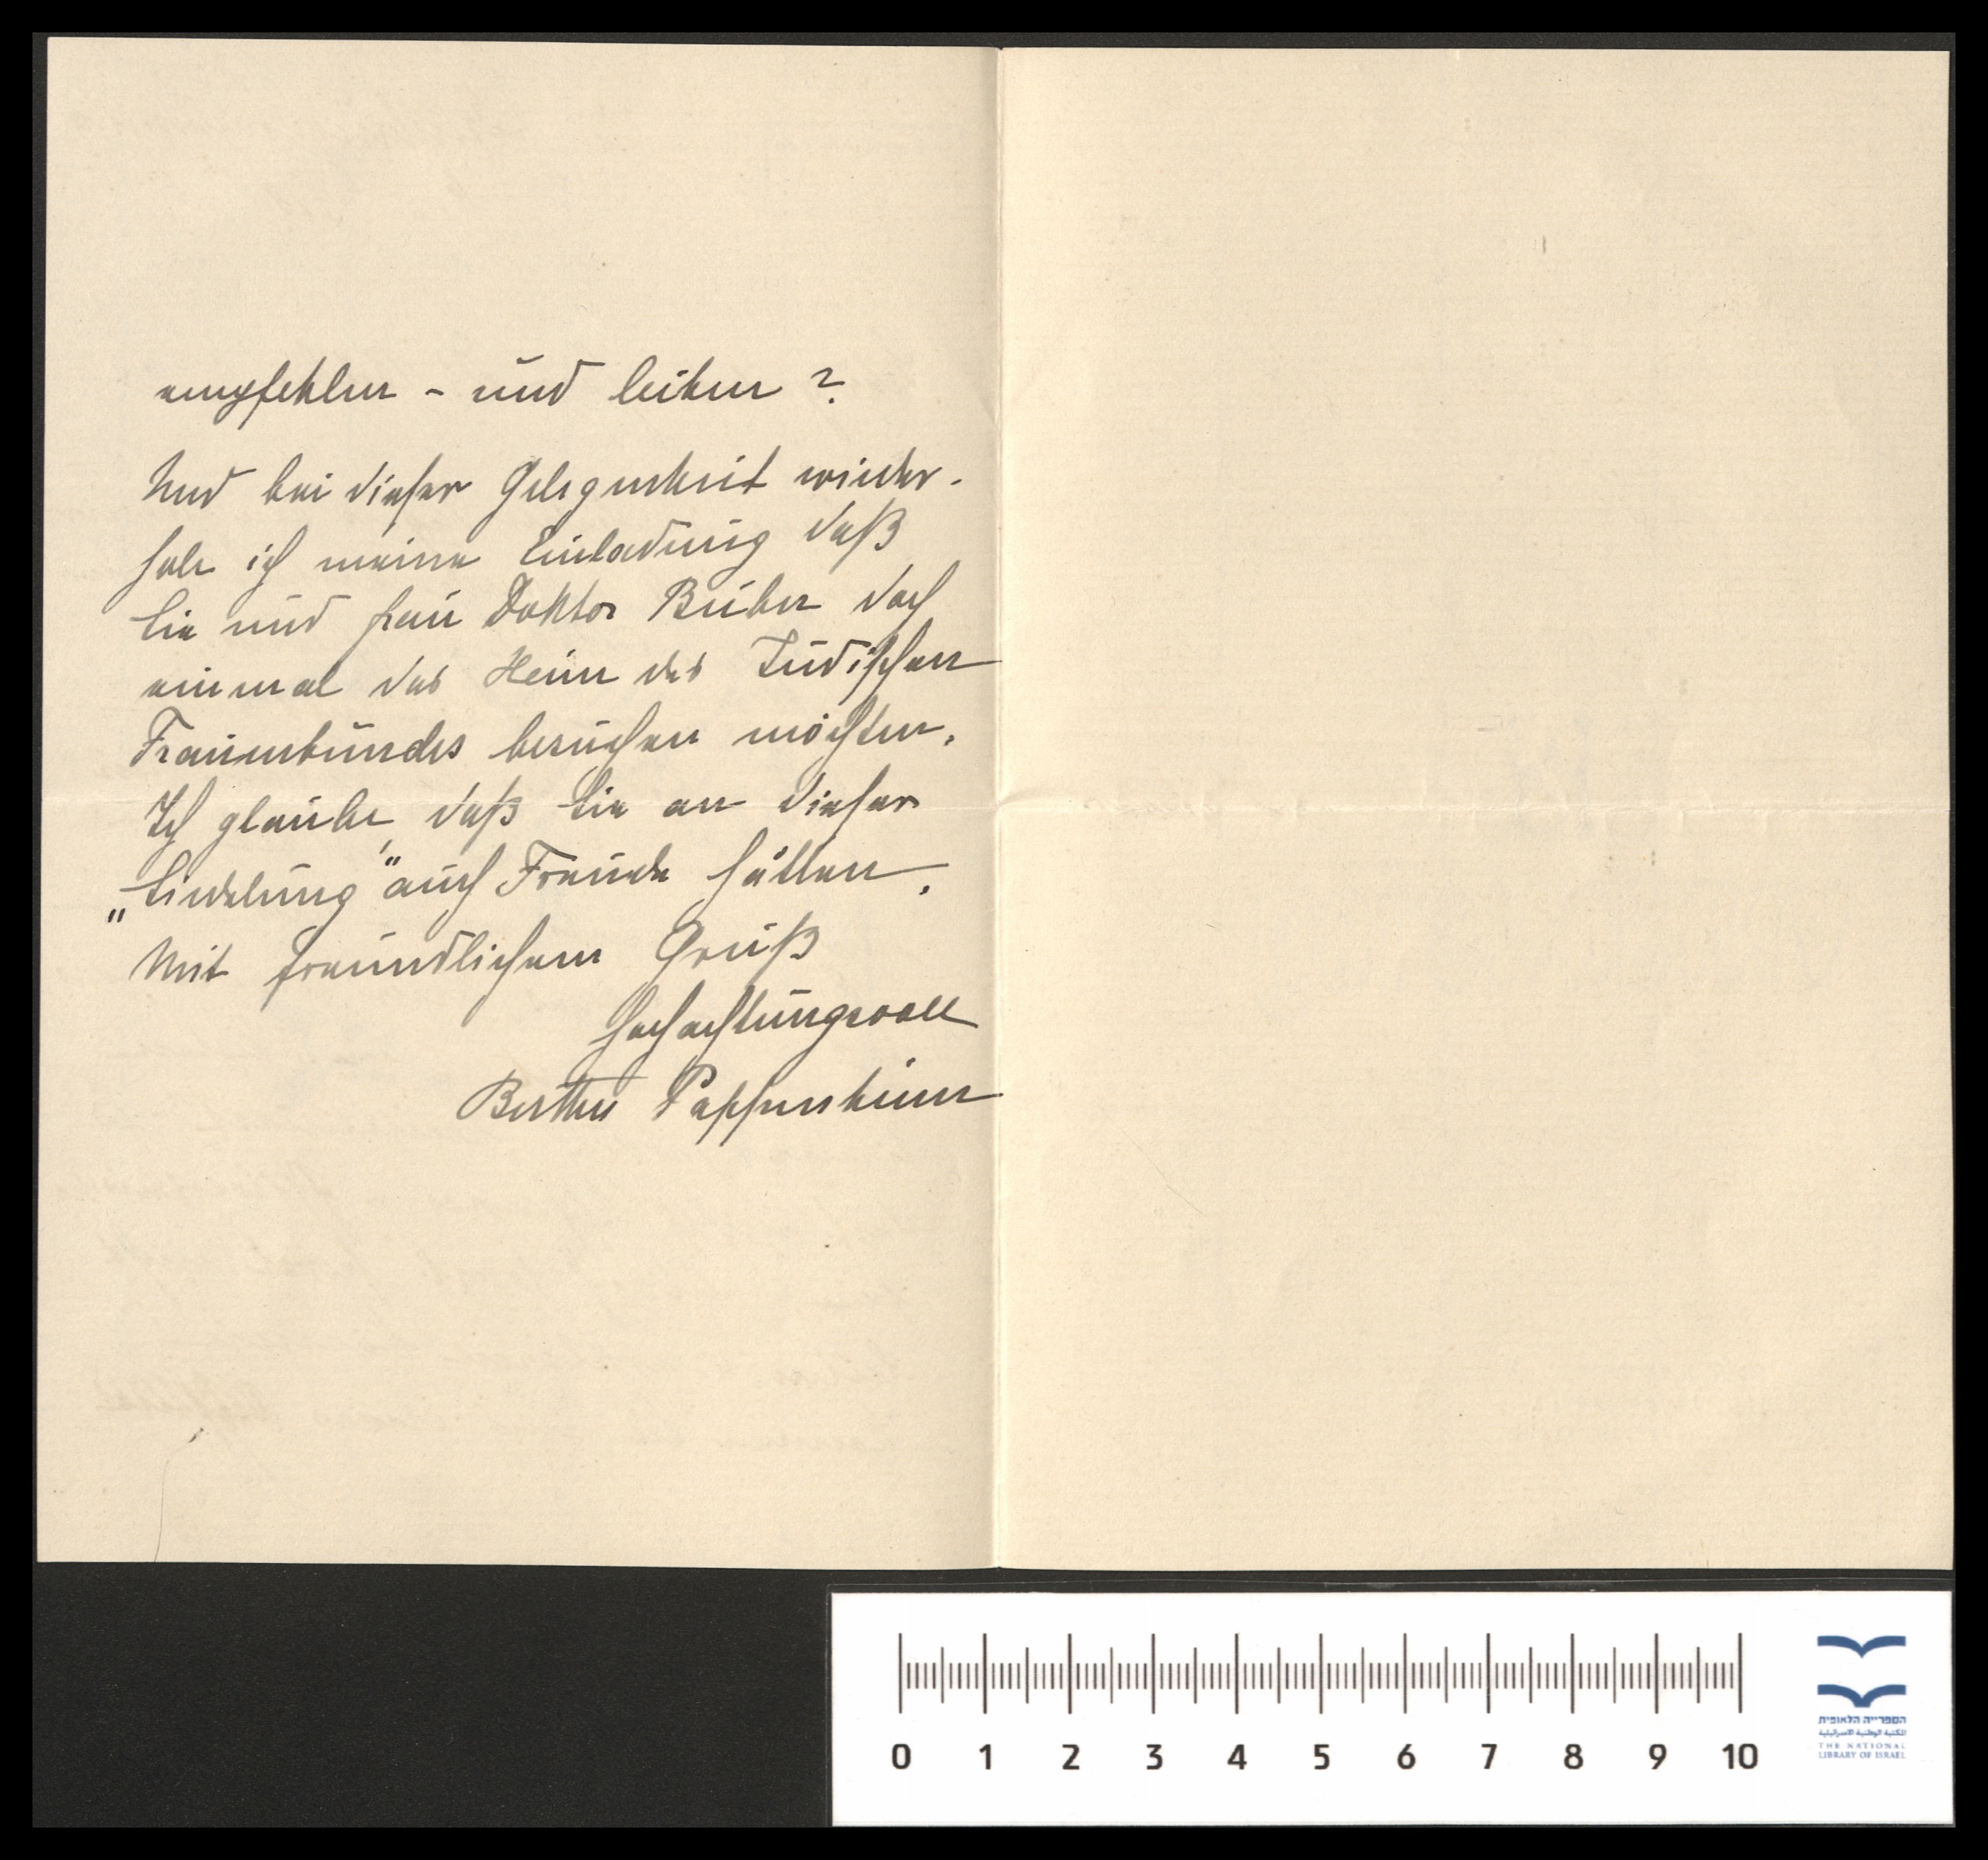 empfehlen - und leihen?
Und bei dieser Gelegenheit wieder-
hole ich meine Einladung daß
Sie und Frau Doktor Buber doch
einmal das Heim des Jüdischen
Frauenbundes besuchen möchten.
Ich glaube, daß Sie an dieser
„Siedelung" auch Freude hätten.
Mit freundlichem Gruß
hochachtungsvoll
Bertha Pappenheim
0 1 2 3 4 5 6 7 8 9 10
הספרייה הלאומית
المكتبة الوطنية الاسرائيلية
THE NATIONAL
LIBRARY OF ISRAEL